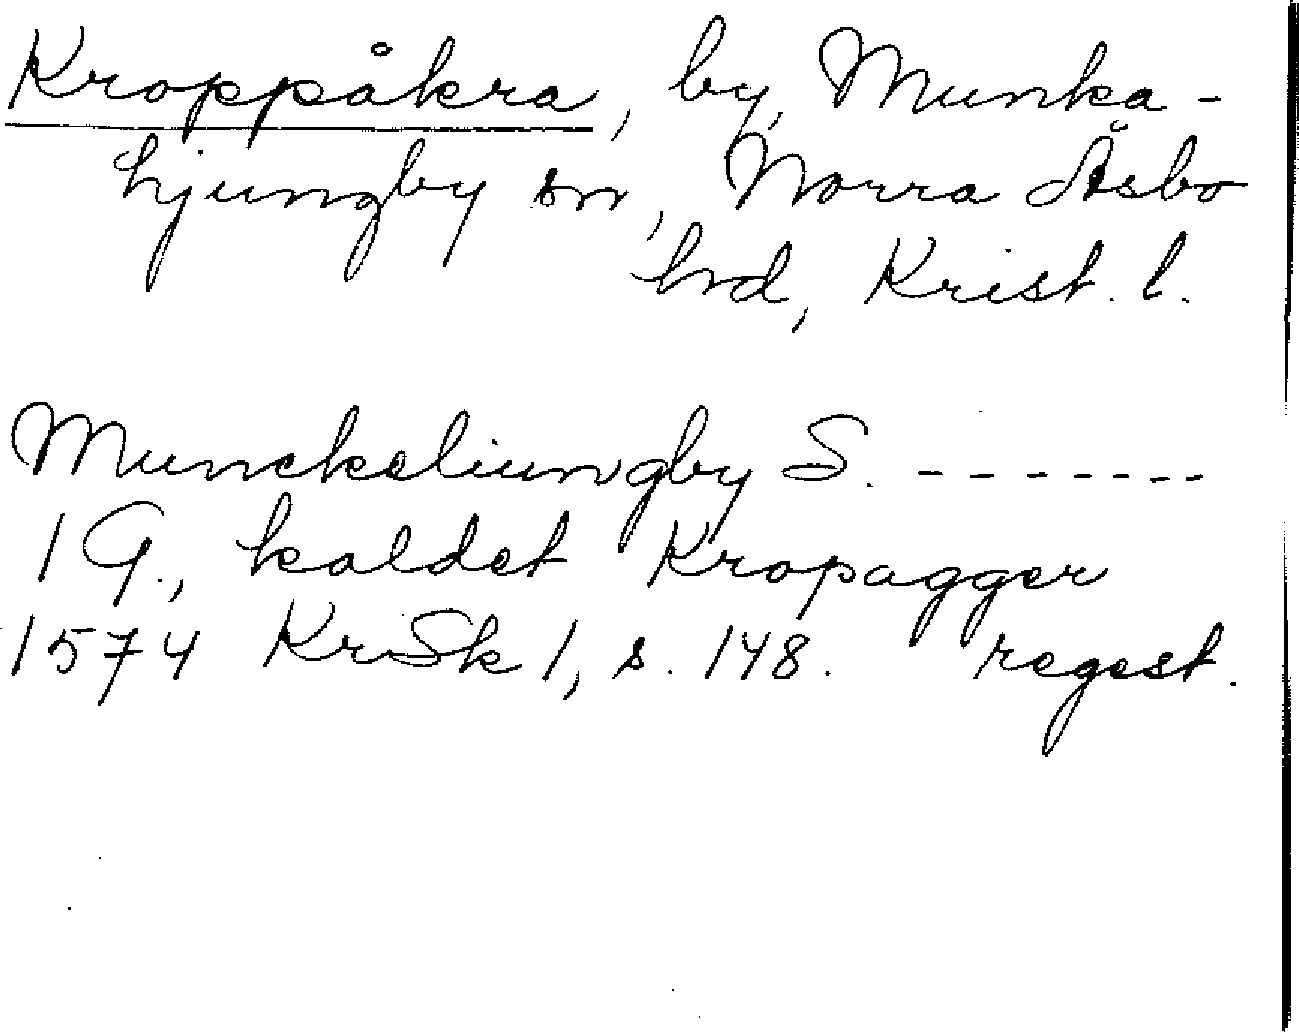 Kroppåkra, by, Munka-
hjungby sn, Norra Åsbo
hd, Krist. l.
Munckeliungby S. -------
1 G., kaldet Kropagger
1574 KrSk 1, s. 148. regest.